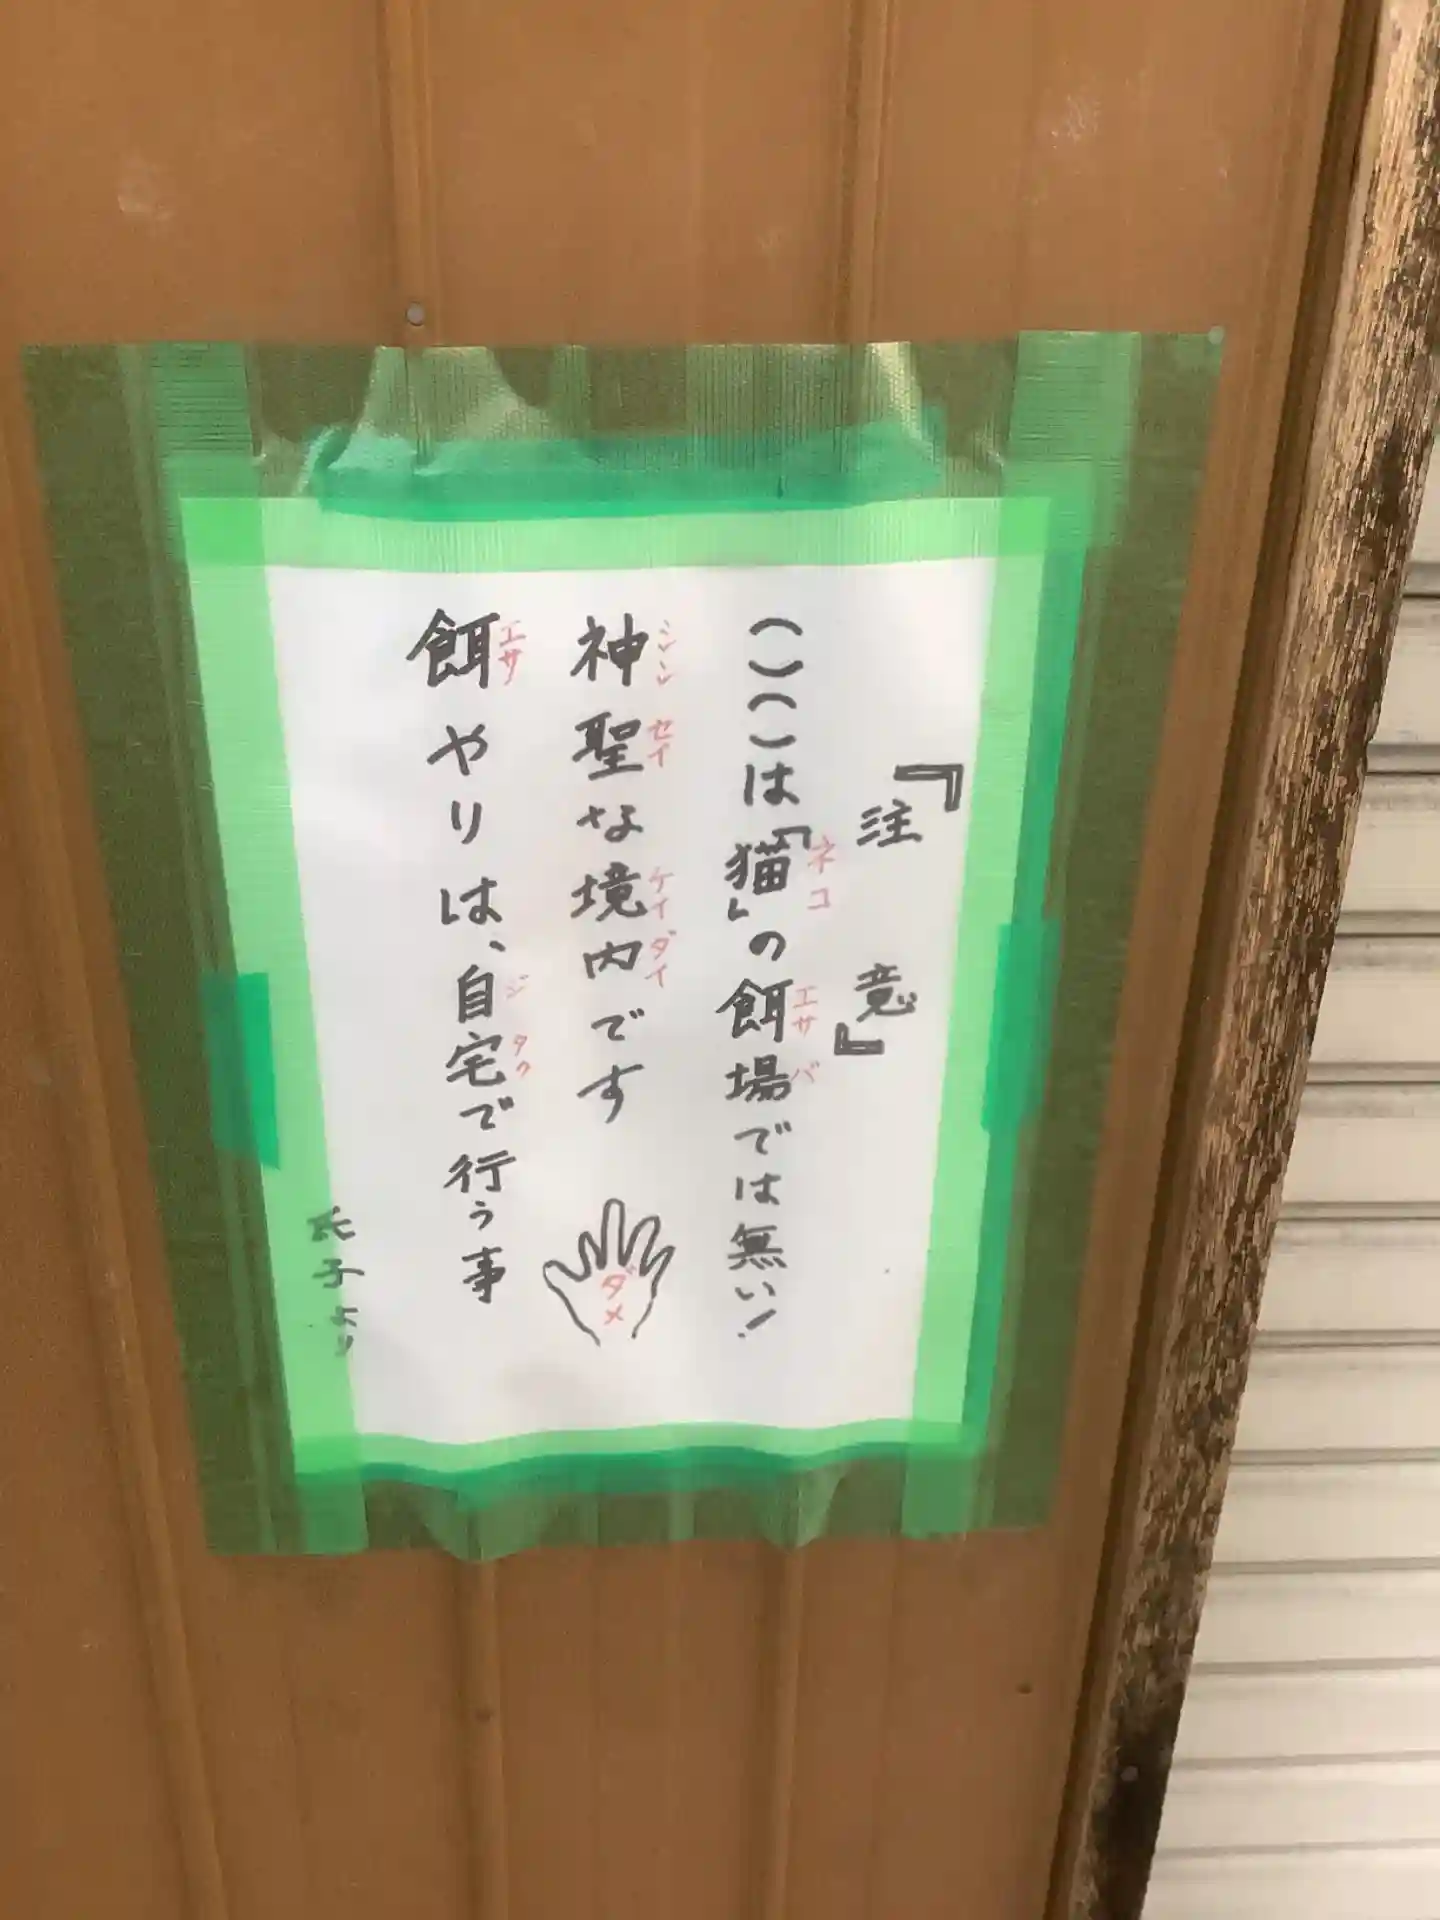 『注意』
ここは『猫』の餌場では無い!
ネコ
エサバ
神聖な境内です
シンセイ
ケイダイ
ダメ
餌やりは、自宅で行う事
エサ
ジタク
氏子より